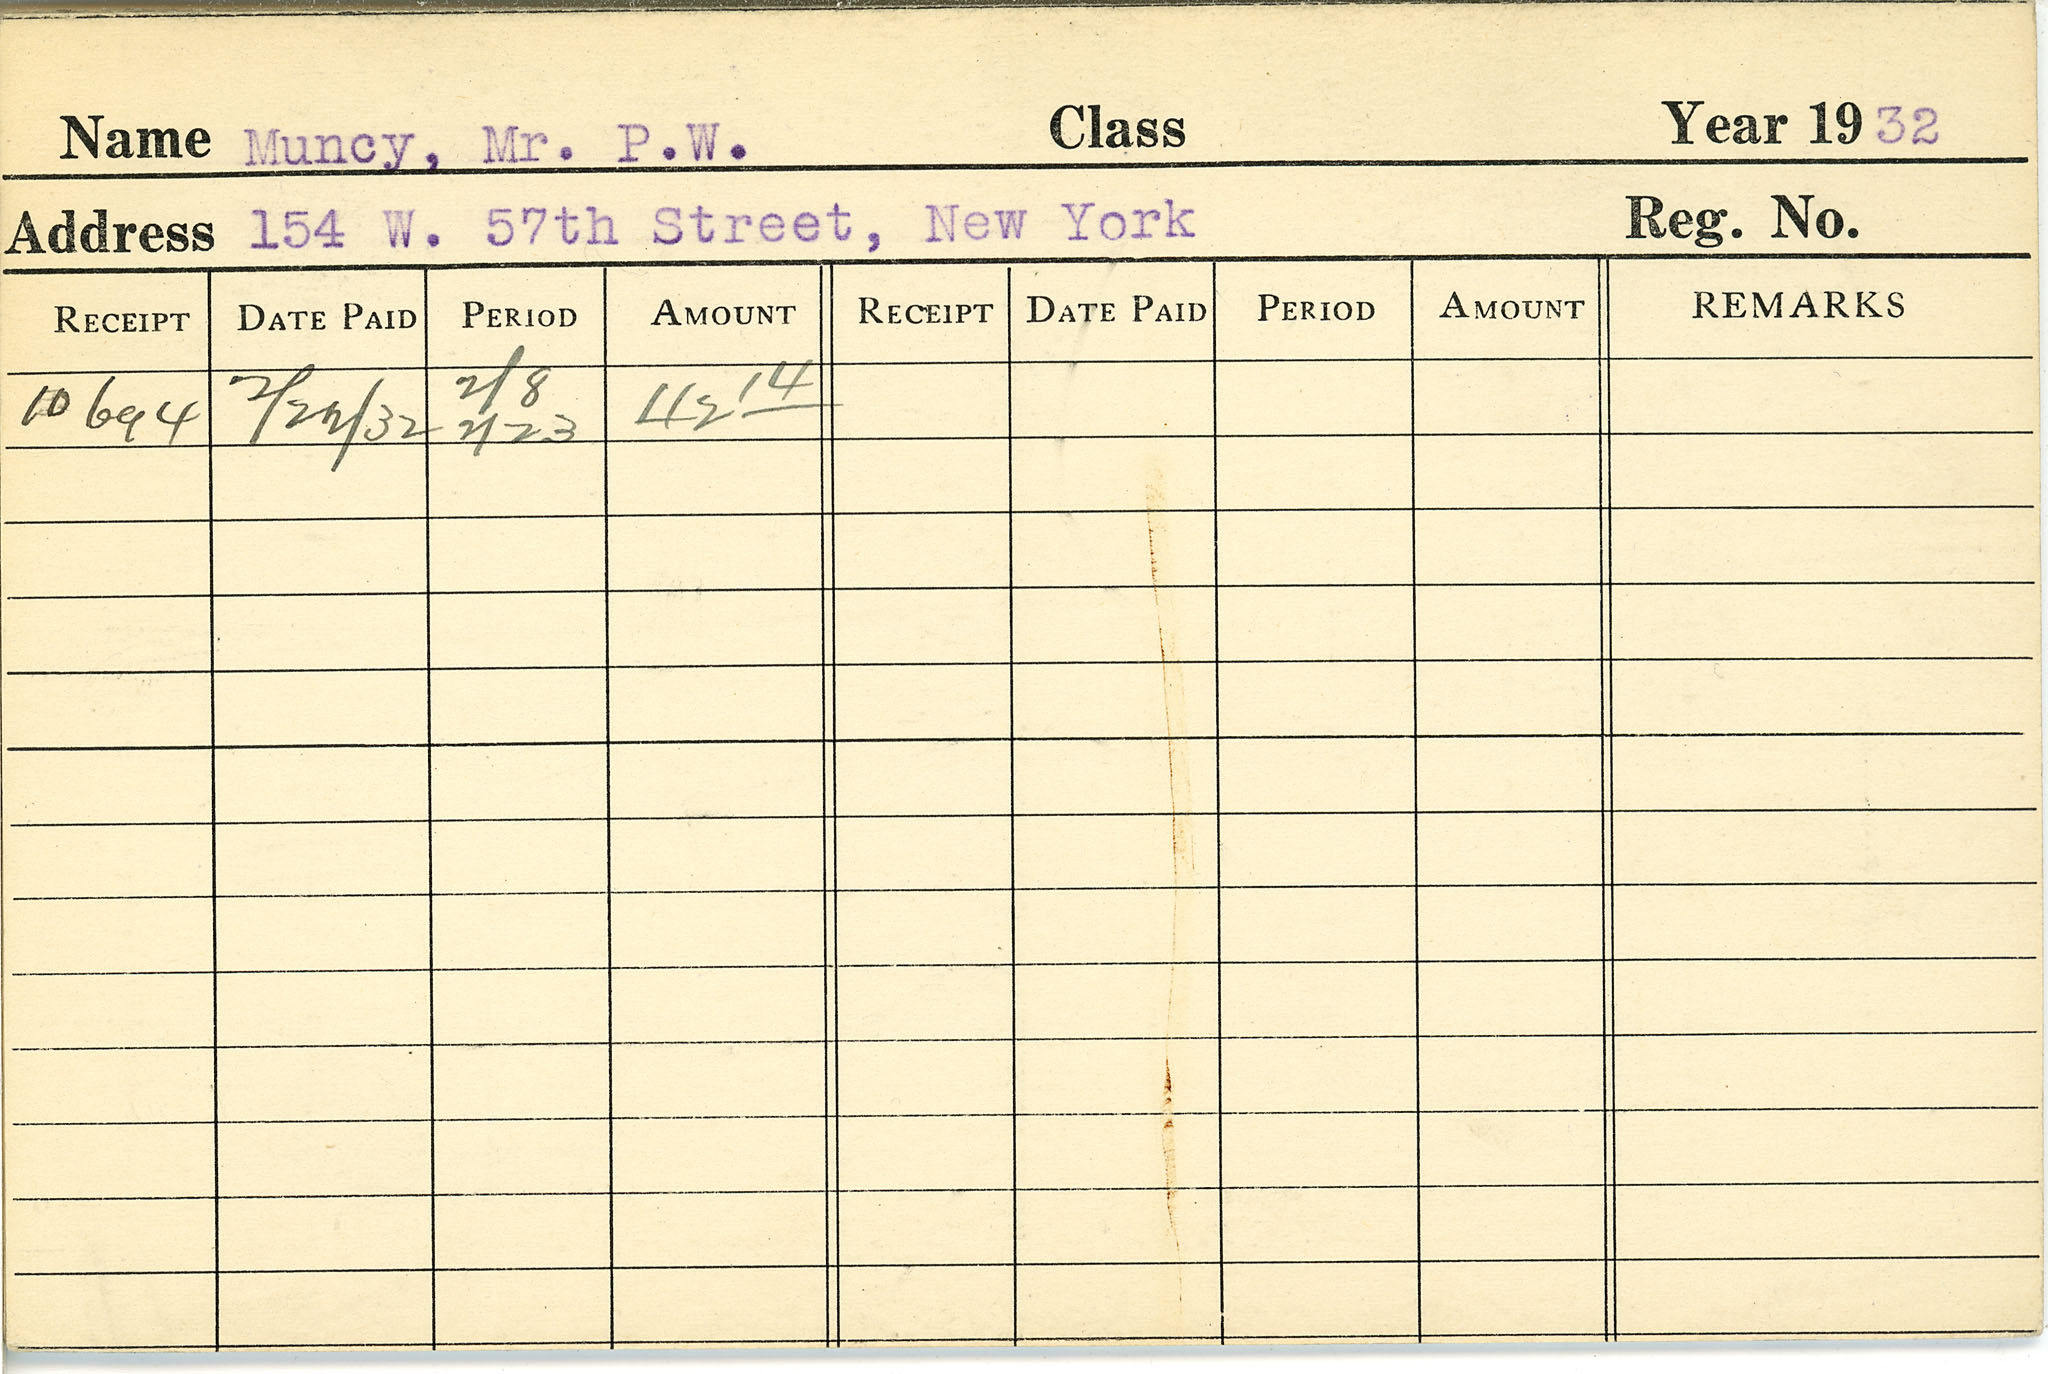 Name Muncy, Mr. P.W. Class Year 1932
Address 154 W. 57th Street, New York Reg. No.
RECEIPT DATE PAID PERIOD AMOUNT RECEIPT DATE PAID PERIOD AMOUNT REMARKS
10694 2/22/32 2/8 2/23 42 14